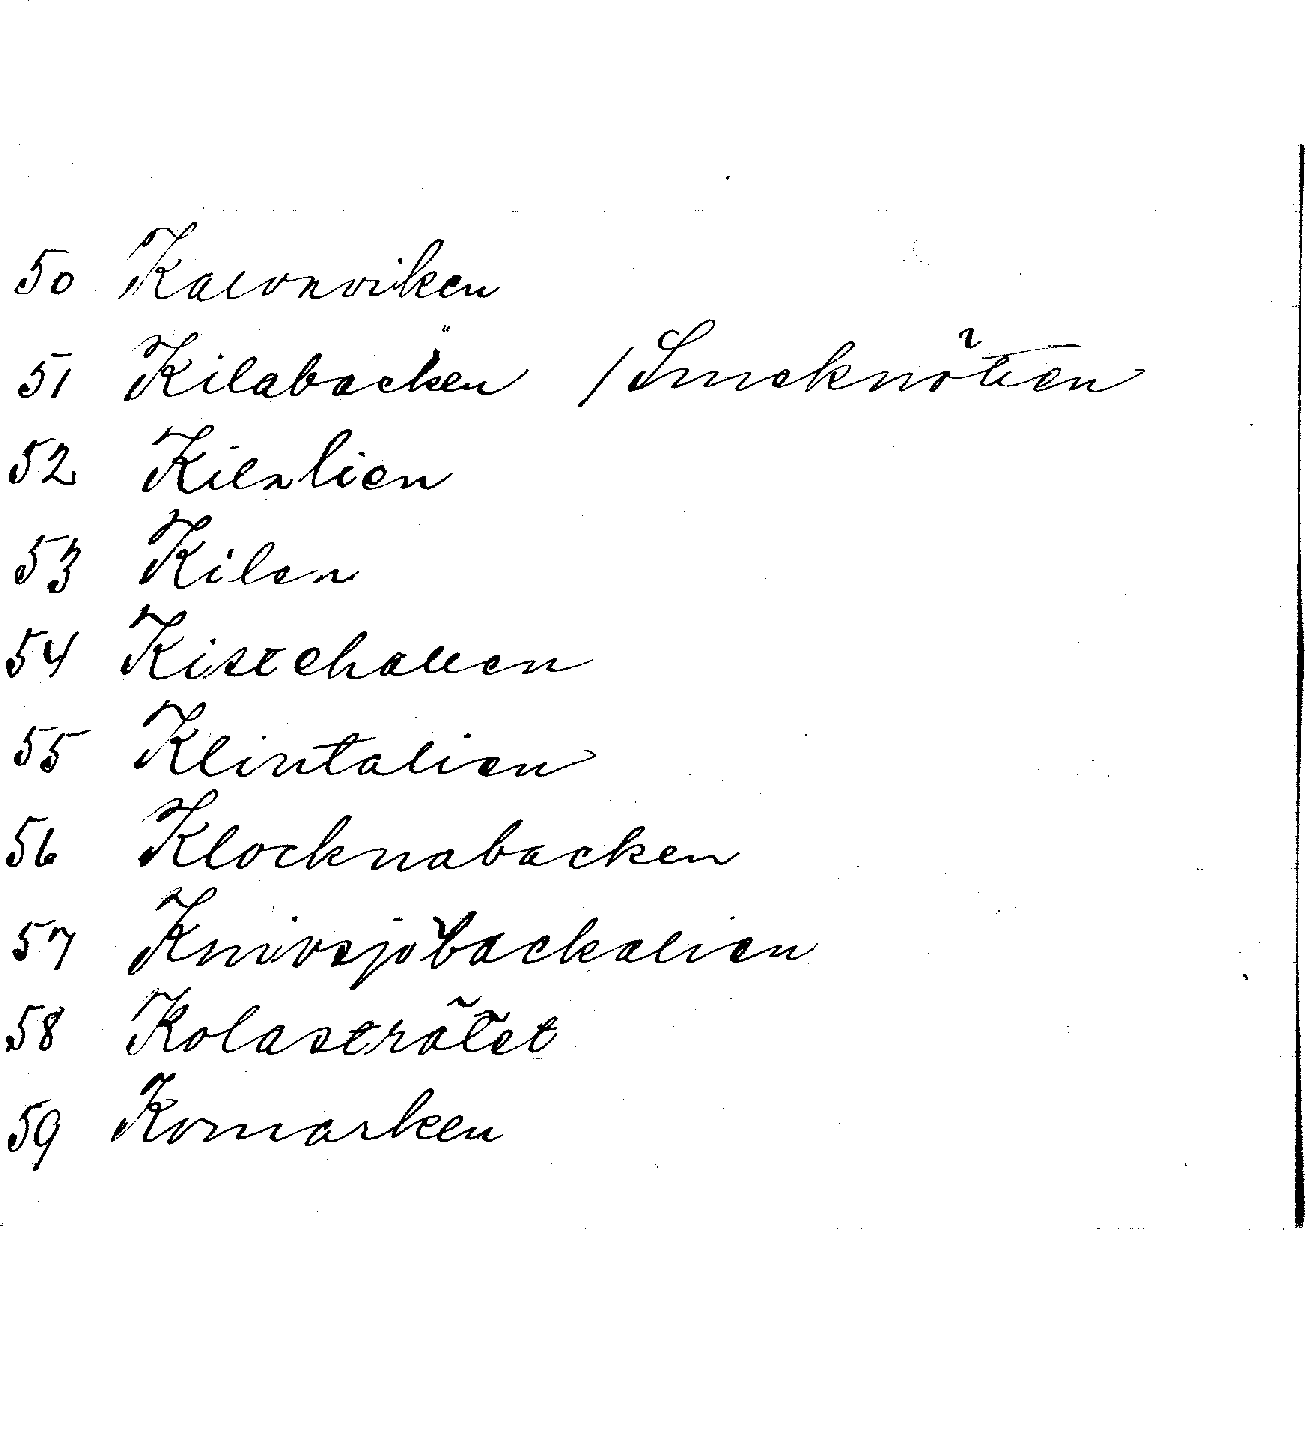 50 Kalvnviken
51 Kilabäcken / Smeknötten
52 Kilnlien
53 Kilen
54 Kistehallen
55 Klintalien
56 Klocknabacken
57 Knivsjöbackalien
58 Kolasträtet
59 Komarken